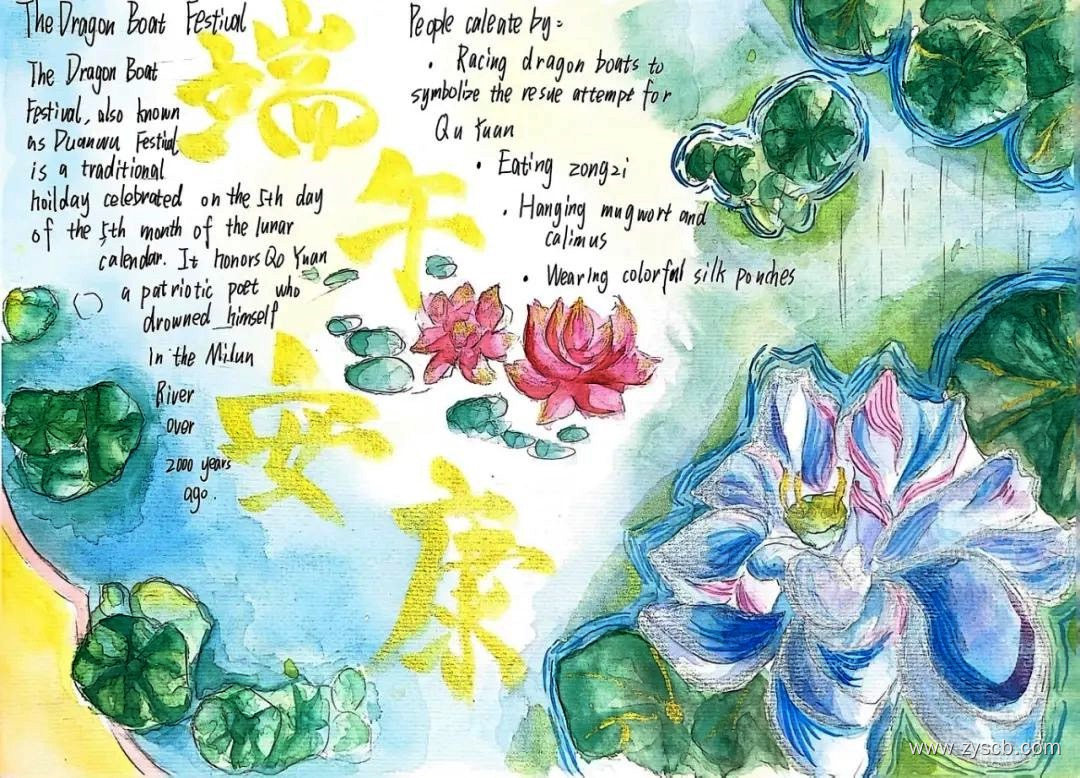 The Dragon Boat Festival
The Dragon Boat
Festival, also known
as Duanwu Festival
is a traditional
hoilday celebrated on the 5th day
of the 5th month of the lunar
calendar. It honors Qo Yuan
a patriotic poet who
drowned himself
In the Milun
River
over
2000 years
ago.
端
午
安
康
People caleate by:
· Racing dragon boats to
symbolize the resue attempt for
Qu Yuan
· Eating zongzi
· Hanging mugwort and
calimus
· Wearing colorful silk pouches
www.zyscb.com